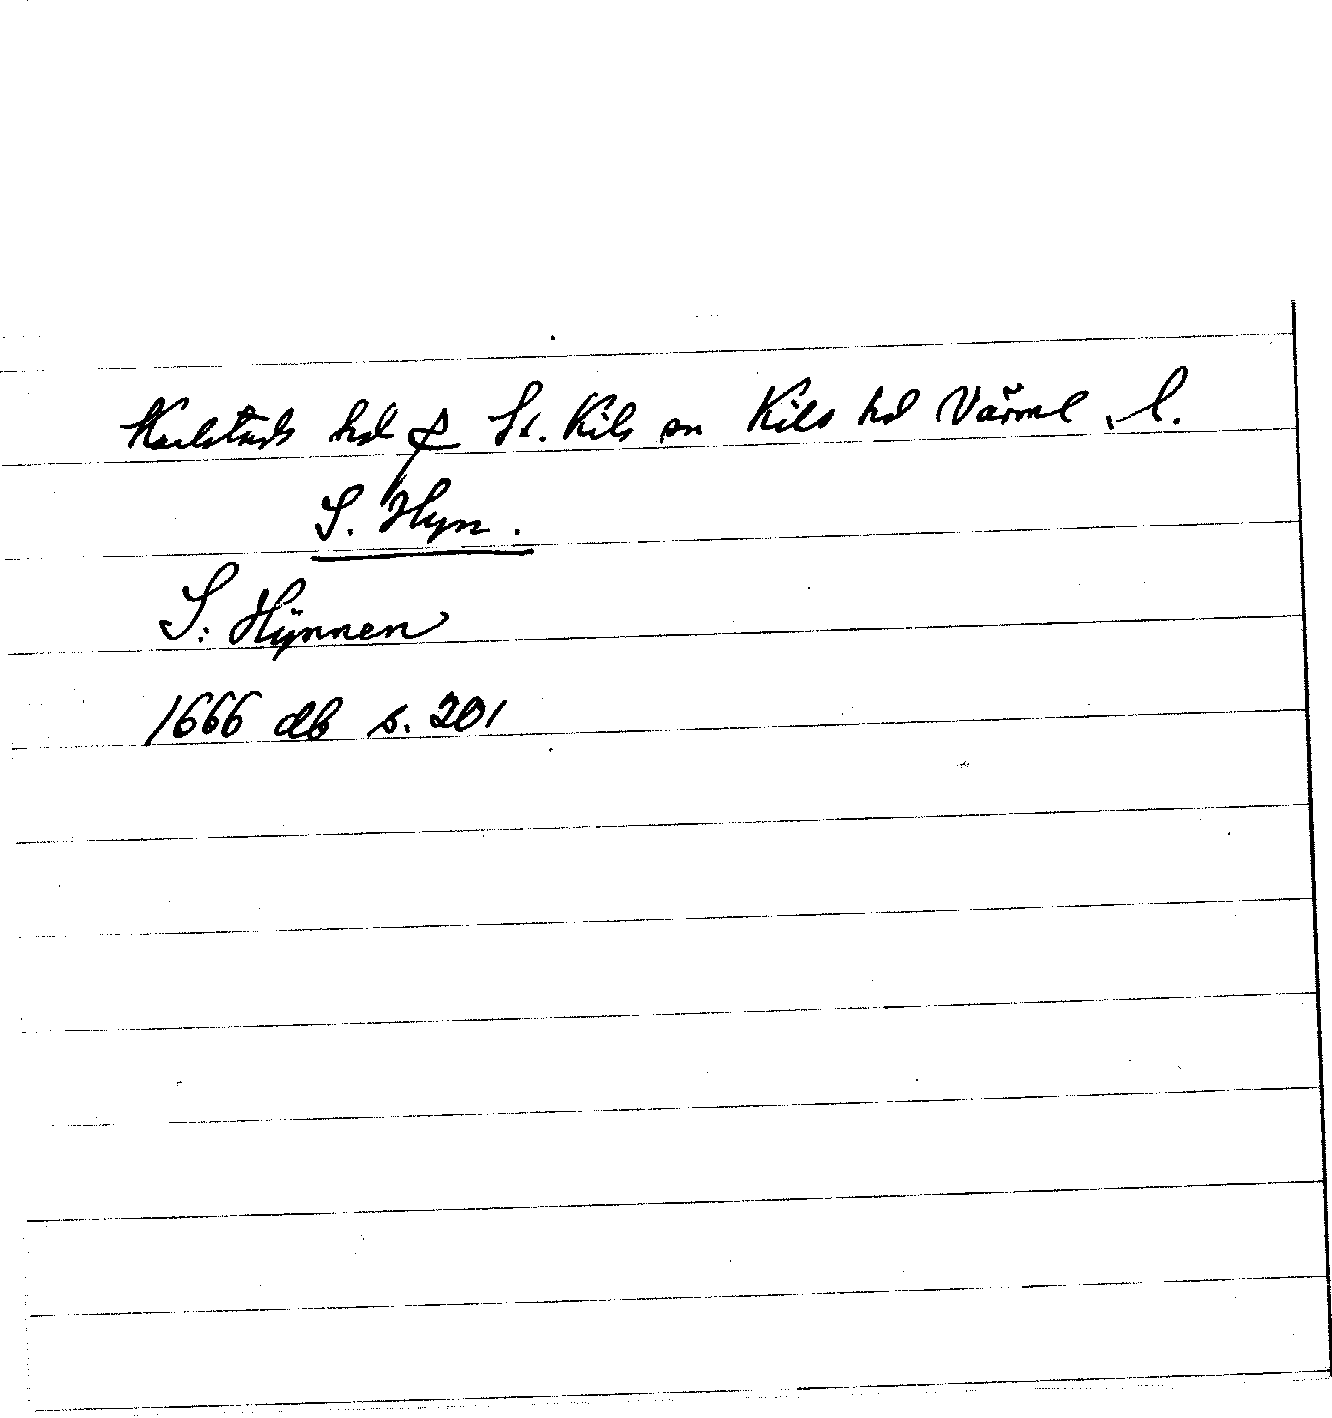 Karlstads hd f St. Kils sn Kils hd Värml. l.
S. Hyn.
S: Hÿnnen
1666 db s. 201